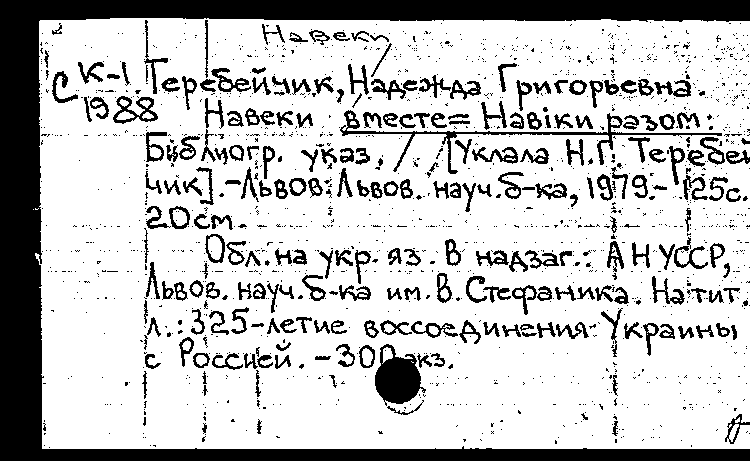 Навеки
С К-1
1988
Теребейчик, Надежда Григорьевна.
Навеки вместе = Навіки разом:
Библиогр. указ. / [Уклала Н.Г. Теребей
чик]. - Львов: Львов. науч. б-ка, 1979. - 125 с.
20 см.
Обл. на укр. яз. В надзаг.: АН УССР,
Львов. науч. б-ка им. В. Стефаника. На тит.
л.: 325-летие воссоединения Украины
с Россией. - 300 экз.